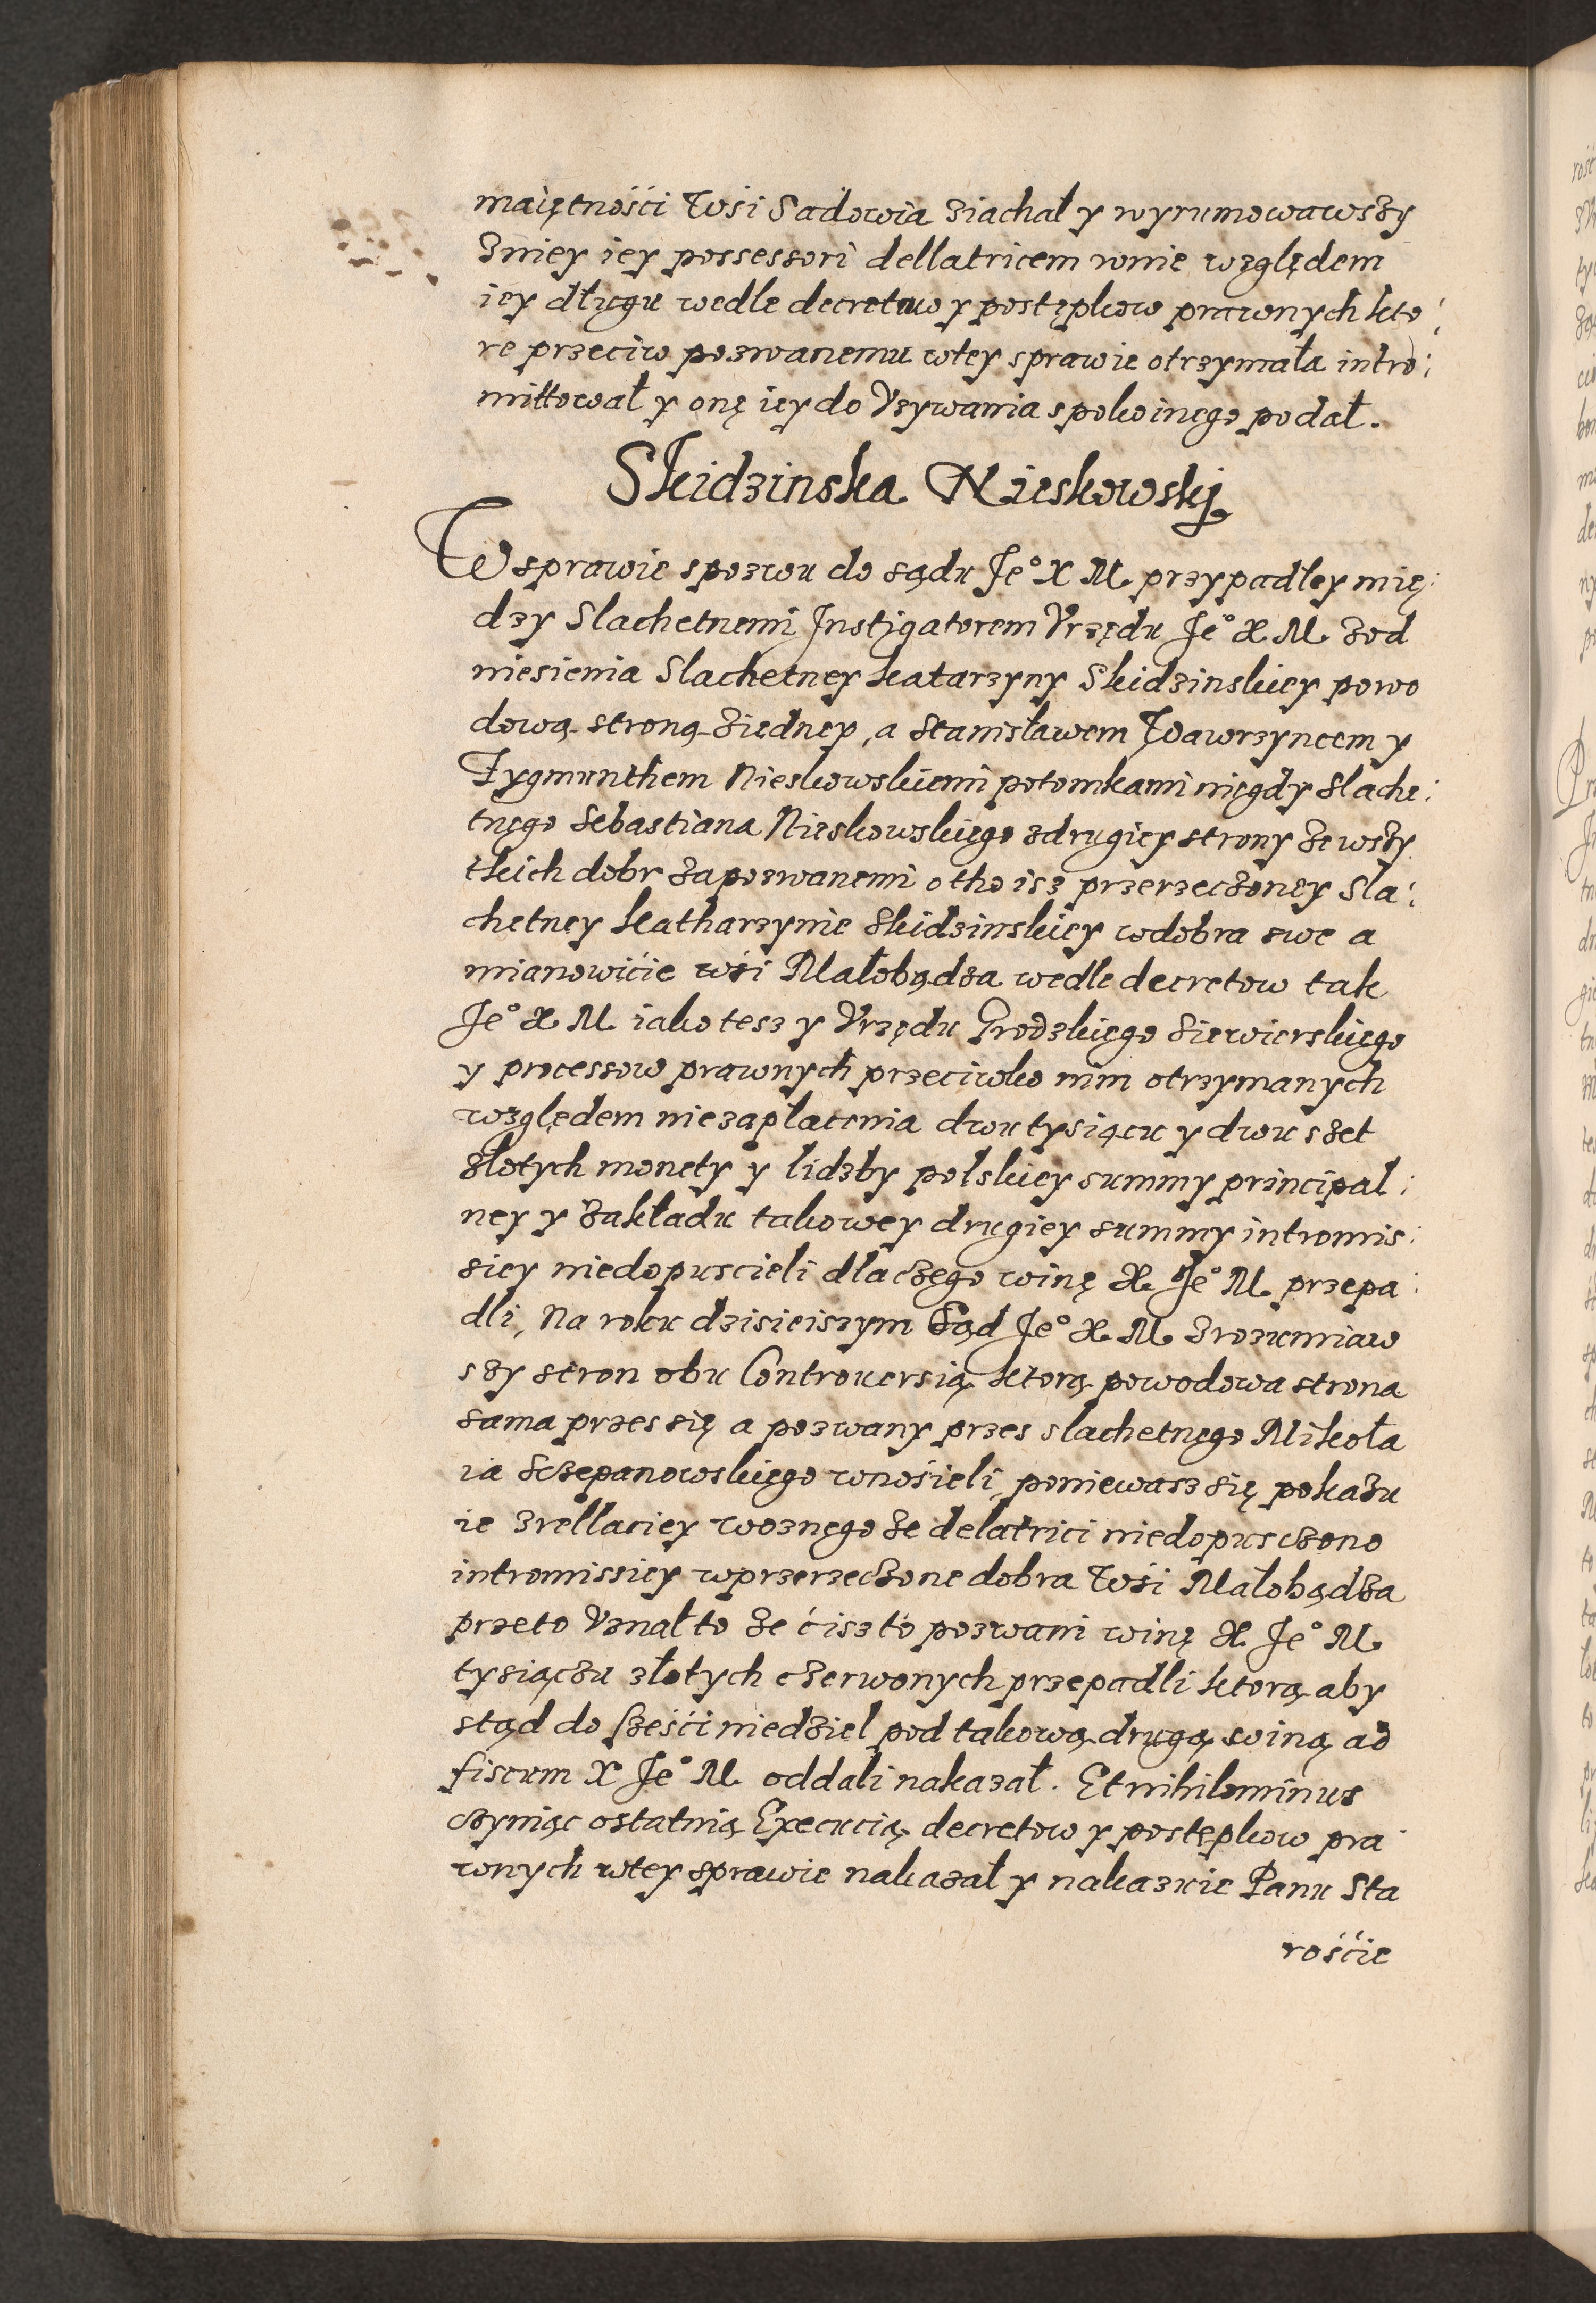 maiętnośći Wśi Sadowia ziachał y wyrumowawszy
zniey iey possessori dellatricem wnie względem
iey długu wedle decretow y postępkow prawnych kto:
re przeciw pozwanemu wtey sprawie otrzymała intro:
mittował y onę iey do Vzywania spokoinego podał.
Skidzinska Nieskowskj
W sprawie spozwu do sądu Je° X M. przypadłey mię:
dzy Slachetnemi Jnstigatorem Vrzędu Je° X. M. zod
niesienia Slachetney Katarzyny Skidzinskiey powo
dową stroną ziedney, a Stanisławem Wawrzyncem y
Zygmunthem Nieskowskiemi potomkami niegdy Slache:
tnęgo Sebastiana Nieskowskięgo zdrugiey strony ze wszy
tkich dobr zapozwanemi o tho isz przerzeczoney Sla:
chetney Katharzynie Skidzinskiey wdobra swe a
mianowićie wśi Małobądza wedle decretow tak
Je° X M. iako tesz y Vrzędu Grodzkięgo Siewierskięgo
y processow prawnych przeciwko nim otrzymanych
względem niezapłacenia dwu tysiącu y dwu szet
złotych monety y lidzby polskiey summy principal:
ney y zakładu takowey drugiey summy intromis:
siey niedopuscieli dla częgo winę X. Je° M. przepa:
dli, Na roku dzisieiszym Sąd Je° X. M. zrozumiaw
szy stron obu Controuersią ktorą powodowa strona
sama przes się a pozwany przes slachetnęgo Mikoła
ia Sczepanowskięgo wnośieli, poniewasz się pokazu
ie zrellaciey woznęgo ze delatrici niedopusczono
intromissiey wprzerzeczone dobra Wśi Małobądza
przeto Vznał to ze ćisz to pozwani winę X. Je° M.
tysiączu złotych czerwonych przepadli ktorą aby
stąd do sześći niedziel pod takową drugą winą ad
fiscum X Je° M. oddali nakazał. Et nihilominus
czyniąc ostatnią Execucią decretow y postępkow pra
wnych wtey sprawie nakazał y nakazuie Panu Sta
rośćie